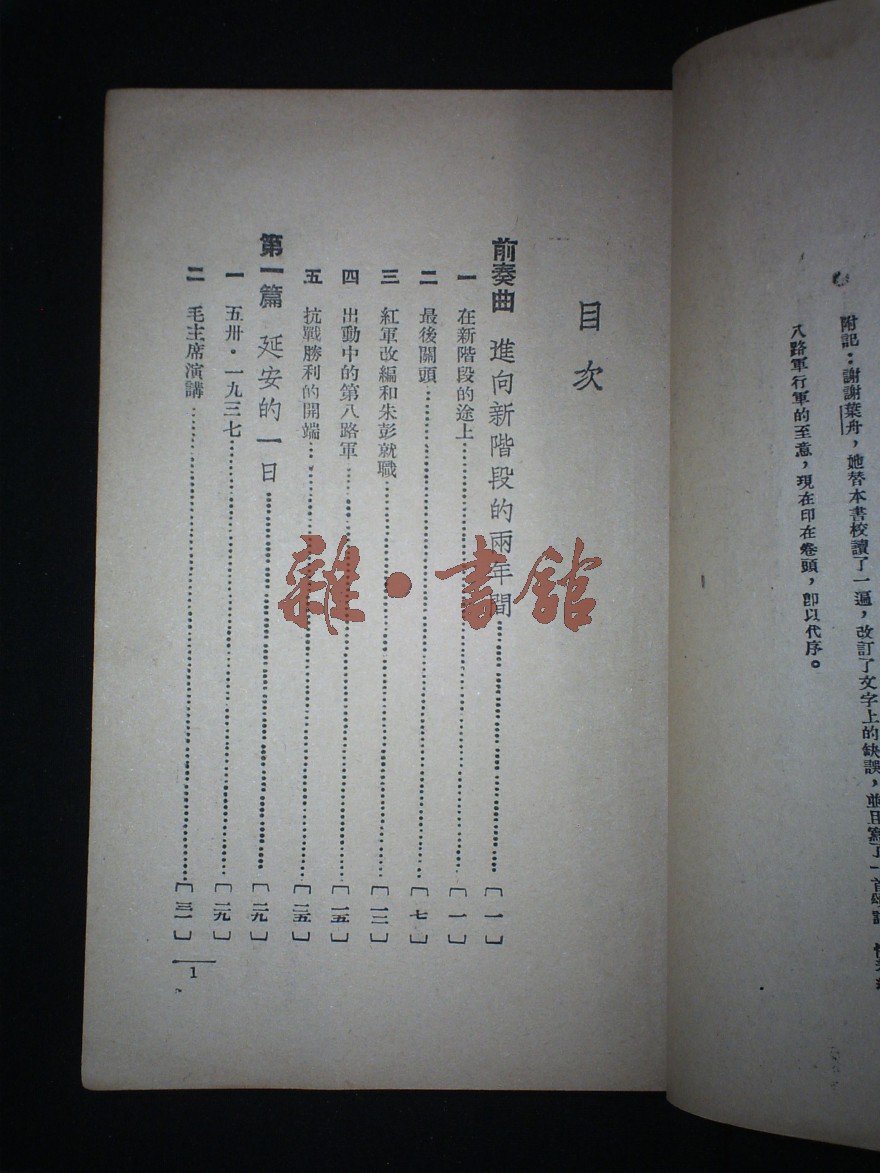 附記：謝謝葉舟，她替本書校讀了一遍，改訂了文字上的缺誤，並且寫了一首
八路軍行軍的至意，現在印在卷頭，卽以代序。
目次
前奏曲 進向新階段的兩年間……[一]
一 在新階段的途上……[一]
二 最後關頭……[七]
三 紅軍改編和朱彭就職……[一二]
四 出動中的第八路軍……[一五]
五 抗戰勝利的開端……[二五]
第一篇 延安的一日……[二九]
一 五卅·一九三七……[二九]
二 毛主席演講……[三一]
1
雜·書館